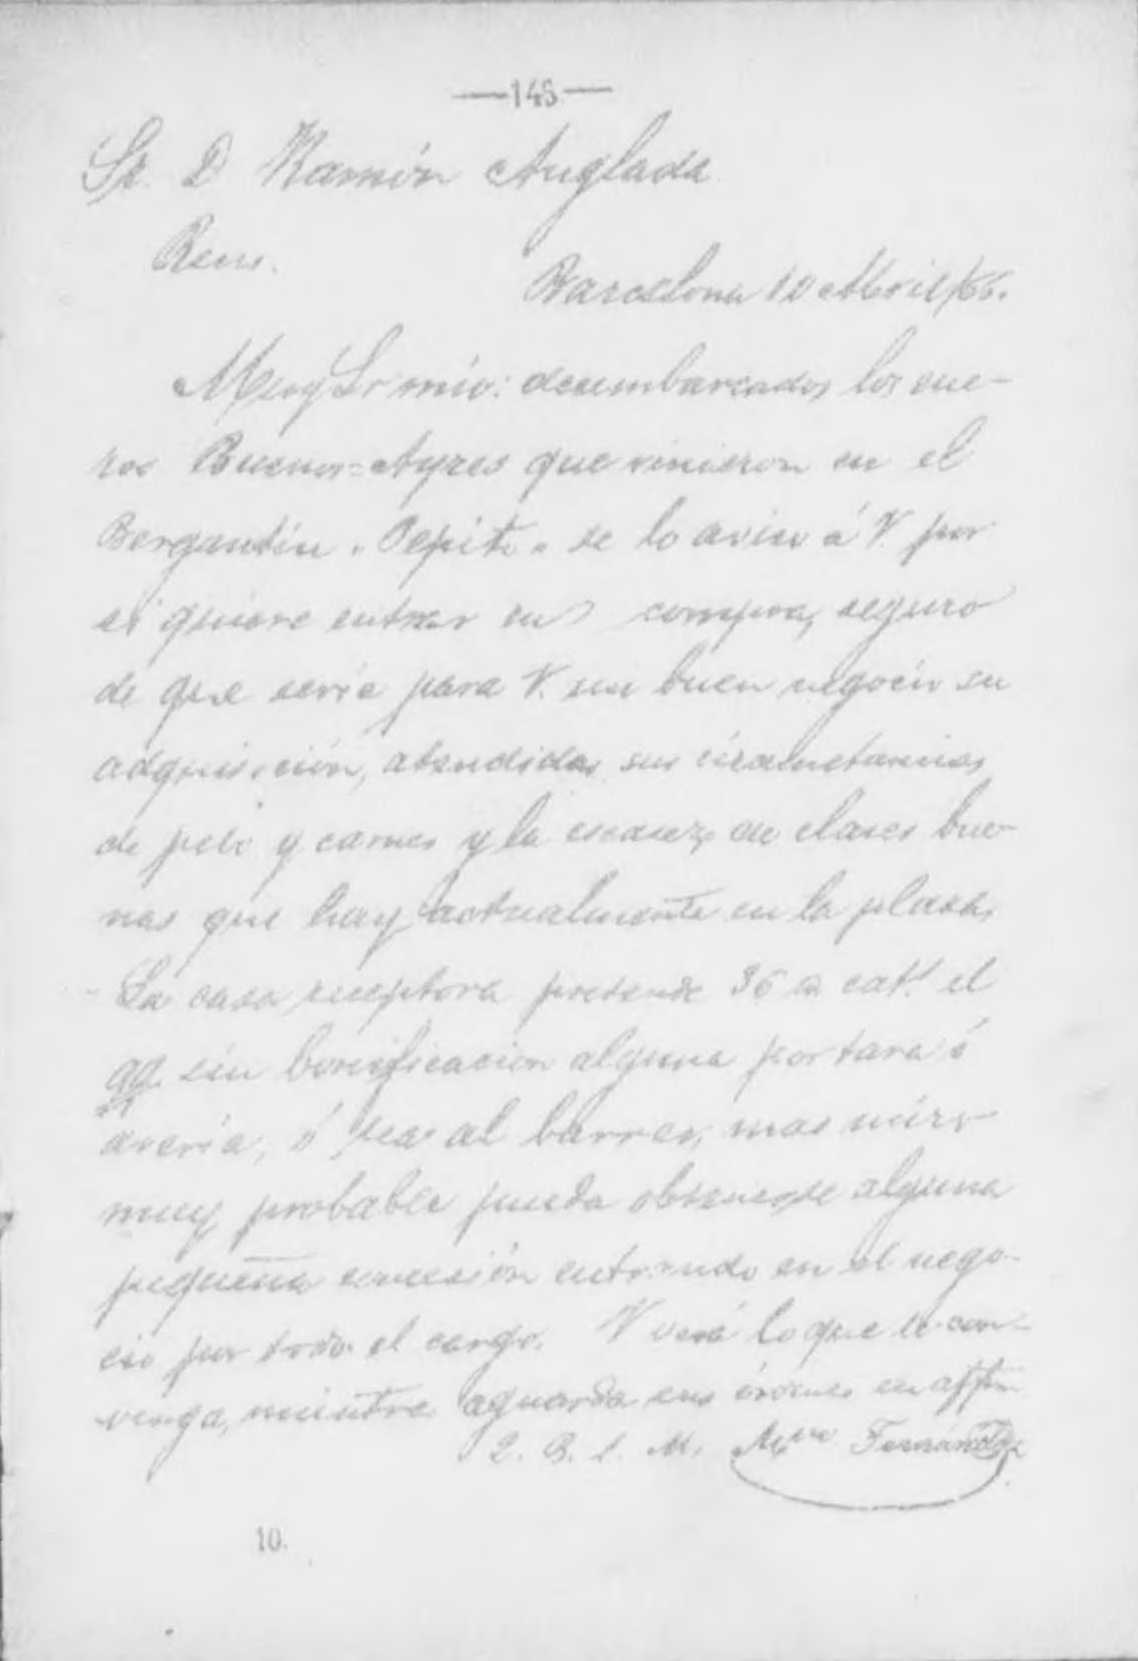 —145—
Sr. D Ramón Anglada
Reus.
Barcelona 10 Abril/66.
Muy Sr mío: desembarcados los cue-
ros Buenos-Ayres que vinieron en el
Bergantín "Pepito" se lo aviso á V. por
si quiere entrar en compra, seguro
de que sería para V. un buen negocio su
adquisición, atendidas sus circunstancias
de pelo y carnes y la escasez de clases bue-
nas que hay actualmente en la plaza.
La casa receptora pretende 36 cat.s el
qq. sin bonificacion alguna por tara ó
avería, ó sea al barrer, mas miro
muy probable pueda obtenerse alguna
pequeña concesión entrando en el nego-
cio por todo el cargo. V verá lo que le con-
venga, mientras aguarda sus órdenes su affmo
Q. B. S. M. Fernández
10.